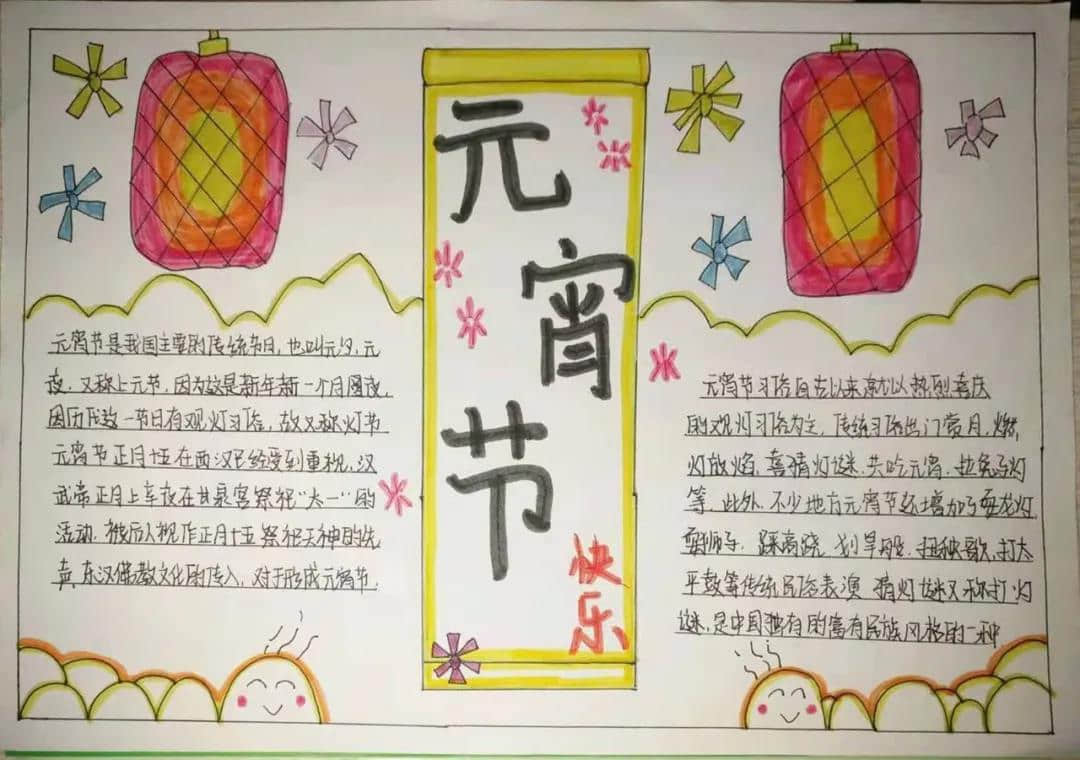 元宵节
快乐
元宵节是我国主要的传统节日，也叫元夕，元
夜，又称上元节，因为这是新年新一个月圆夜
因历代这一节日有观灯习俗，故又称灯节
元宵节正月十五在西汉已经受到重视，汉
武帝正月上辛夜在甘泉宫祭祀“太一”的
活动，被后人视作正月十五祭祀天神的先
声，东汉佛教文化的传入，对于形成元宵节，
元宵节习俗自古以来就以热烈喜庆
的观灯习俗为主，传统习俗出门赏月，燃
灯放焰，喜猜灯谜，共吃元宵，拉兔子灯
等，此外，不少地方元宵节还增加了耍龙灯，
耍狮子，踩高跷，划旱船，扭秧歌，打太
平鼓等传统民俗表演 猜灯谜又称打灯
谜，是中国独有的富有民族风格的一种